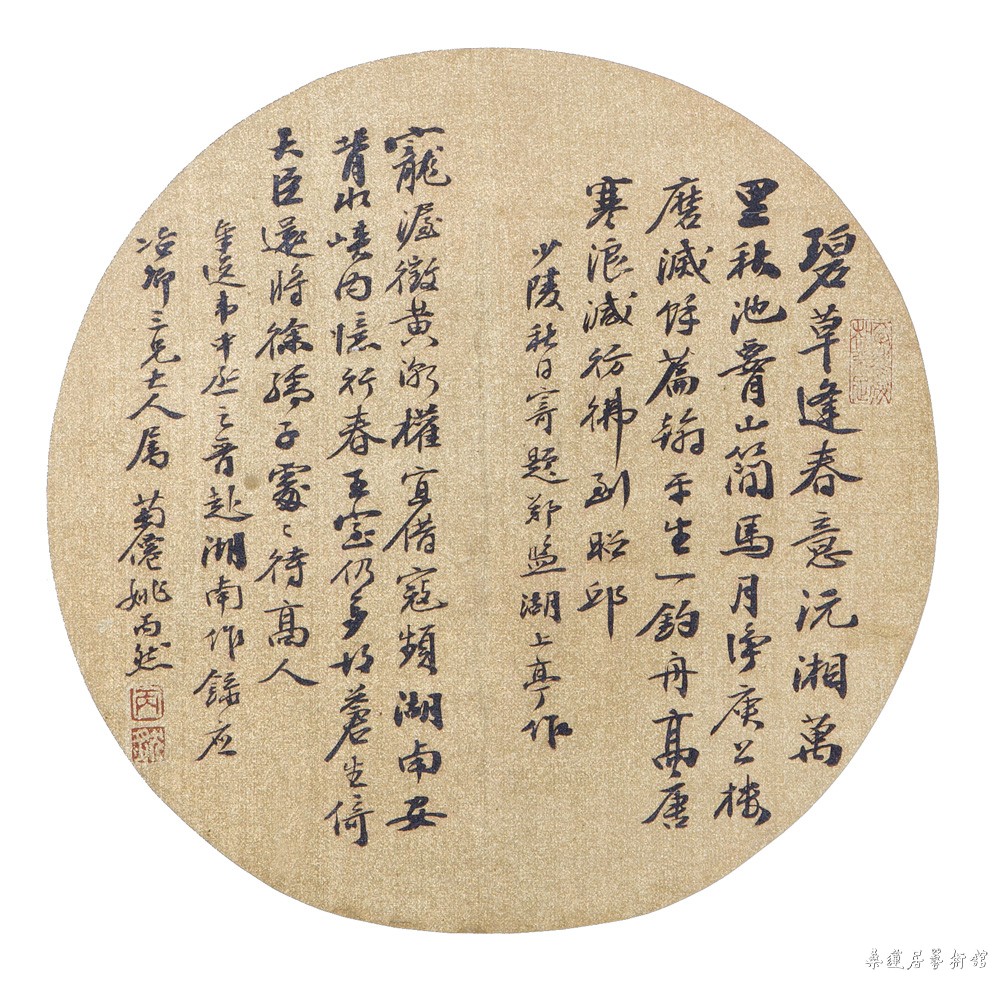 碧草逢春意沅湘萬
里秋池要山簡馬月淨庾公樓
磨滅餘篇翰平生一釣舟高唐
寒浪減彷彿到昭邱
少陵秋日寄題鄭監湖上亭作
寵渥徵黃漸權宜借寇頻湖南安
背水峽內憶行春王室仍多故蒼生倚
大臣還將徐孺子處〻待高人
奉送韋中丞之晉赴湖南作錄应
冶卿三兄大人属 菊僊姚丙然
丙
然
桑蓮居藝術館